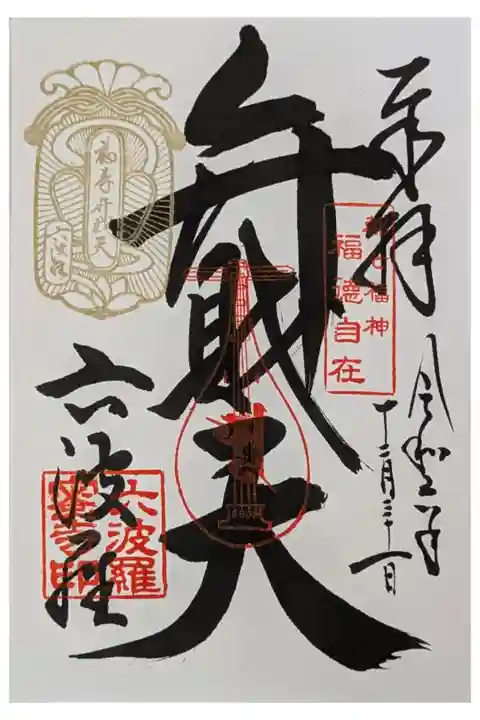 奉拝
令和二年
十二月三十一日
都七福神
福徳自在
弁財天
六波羅
六波羅
蜜寺印
福寿弁財天
六波羅